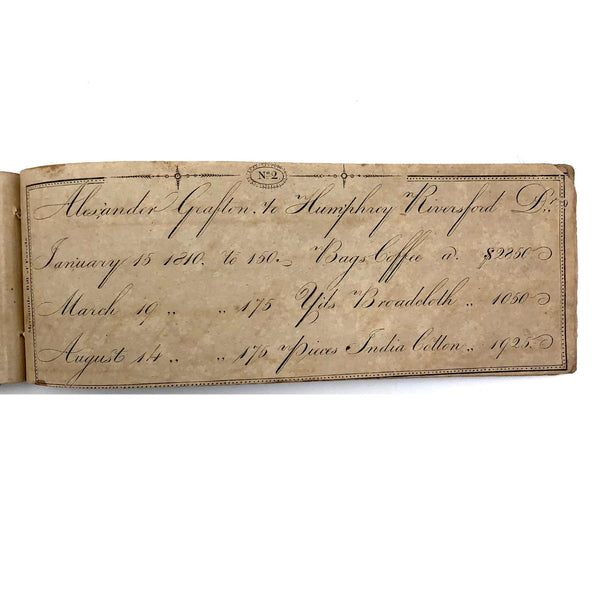 No. 2
Alexander Grafton, to Humphrey Riversford Dr.
January 15 1810. to 150. Bags Coffee a. $2250
March 19 „ „ 175 Yds Broadcloth „ 1050
August 14 „ „ 175 Pieces India Cotton „ 1925